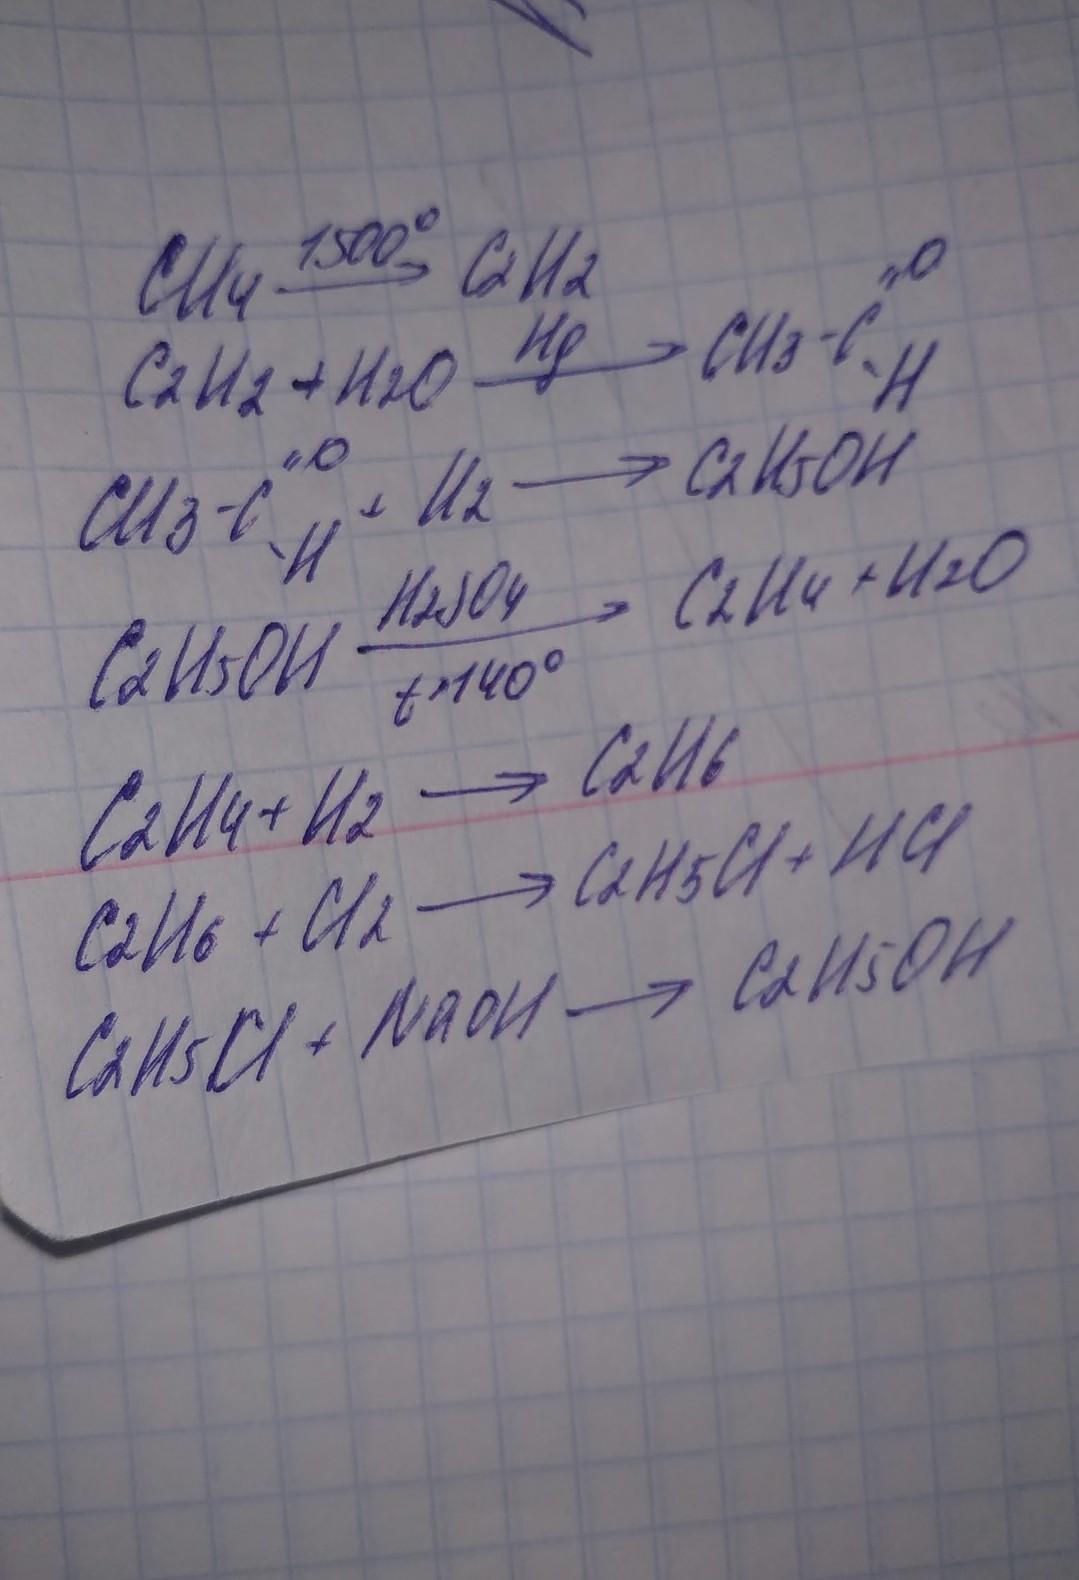 CH4 1500° → C2H2
C2H2 + H2O Hg → CH3-C=O-H
CH3-C=O-H + H2 → C2H5OH
C2H5OH H2SO4 t>140° → C2H4 + H2O
C2H4 + H2 → C2H6
C2H6 + Cl2 → C2H5Cl + HCl
C2H5Cl + NaOH → C2H5OH